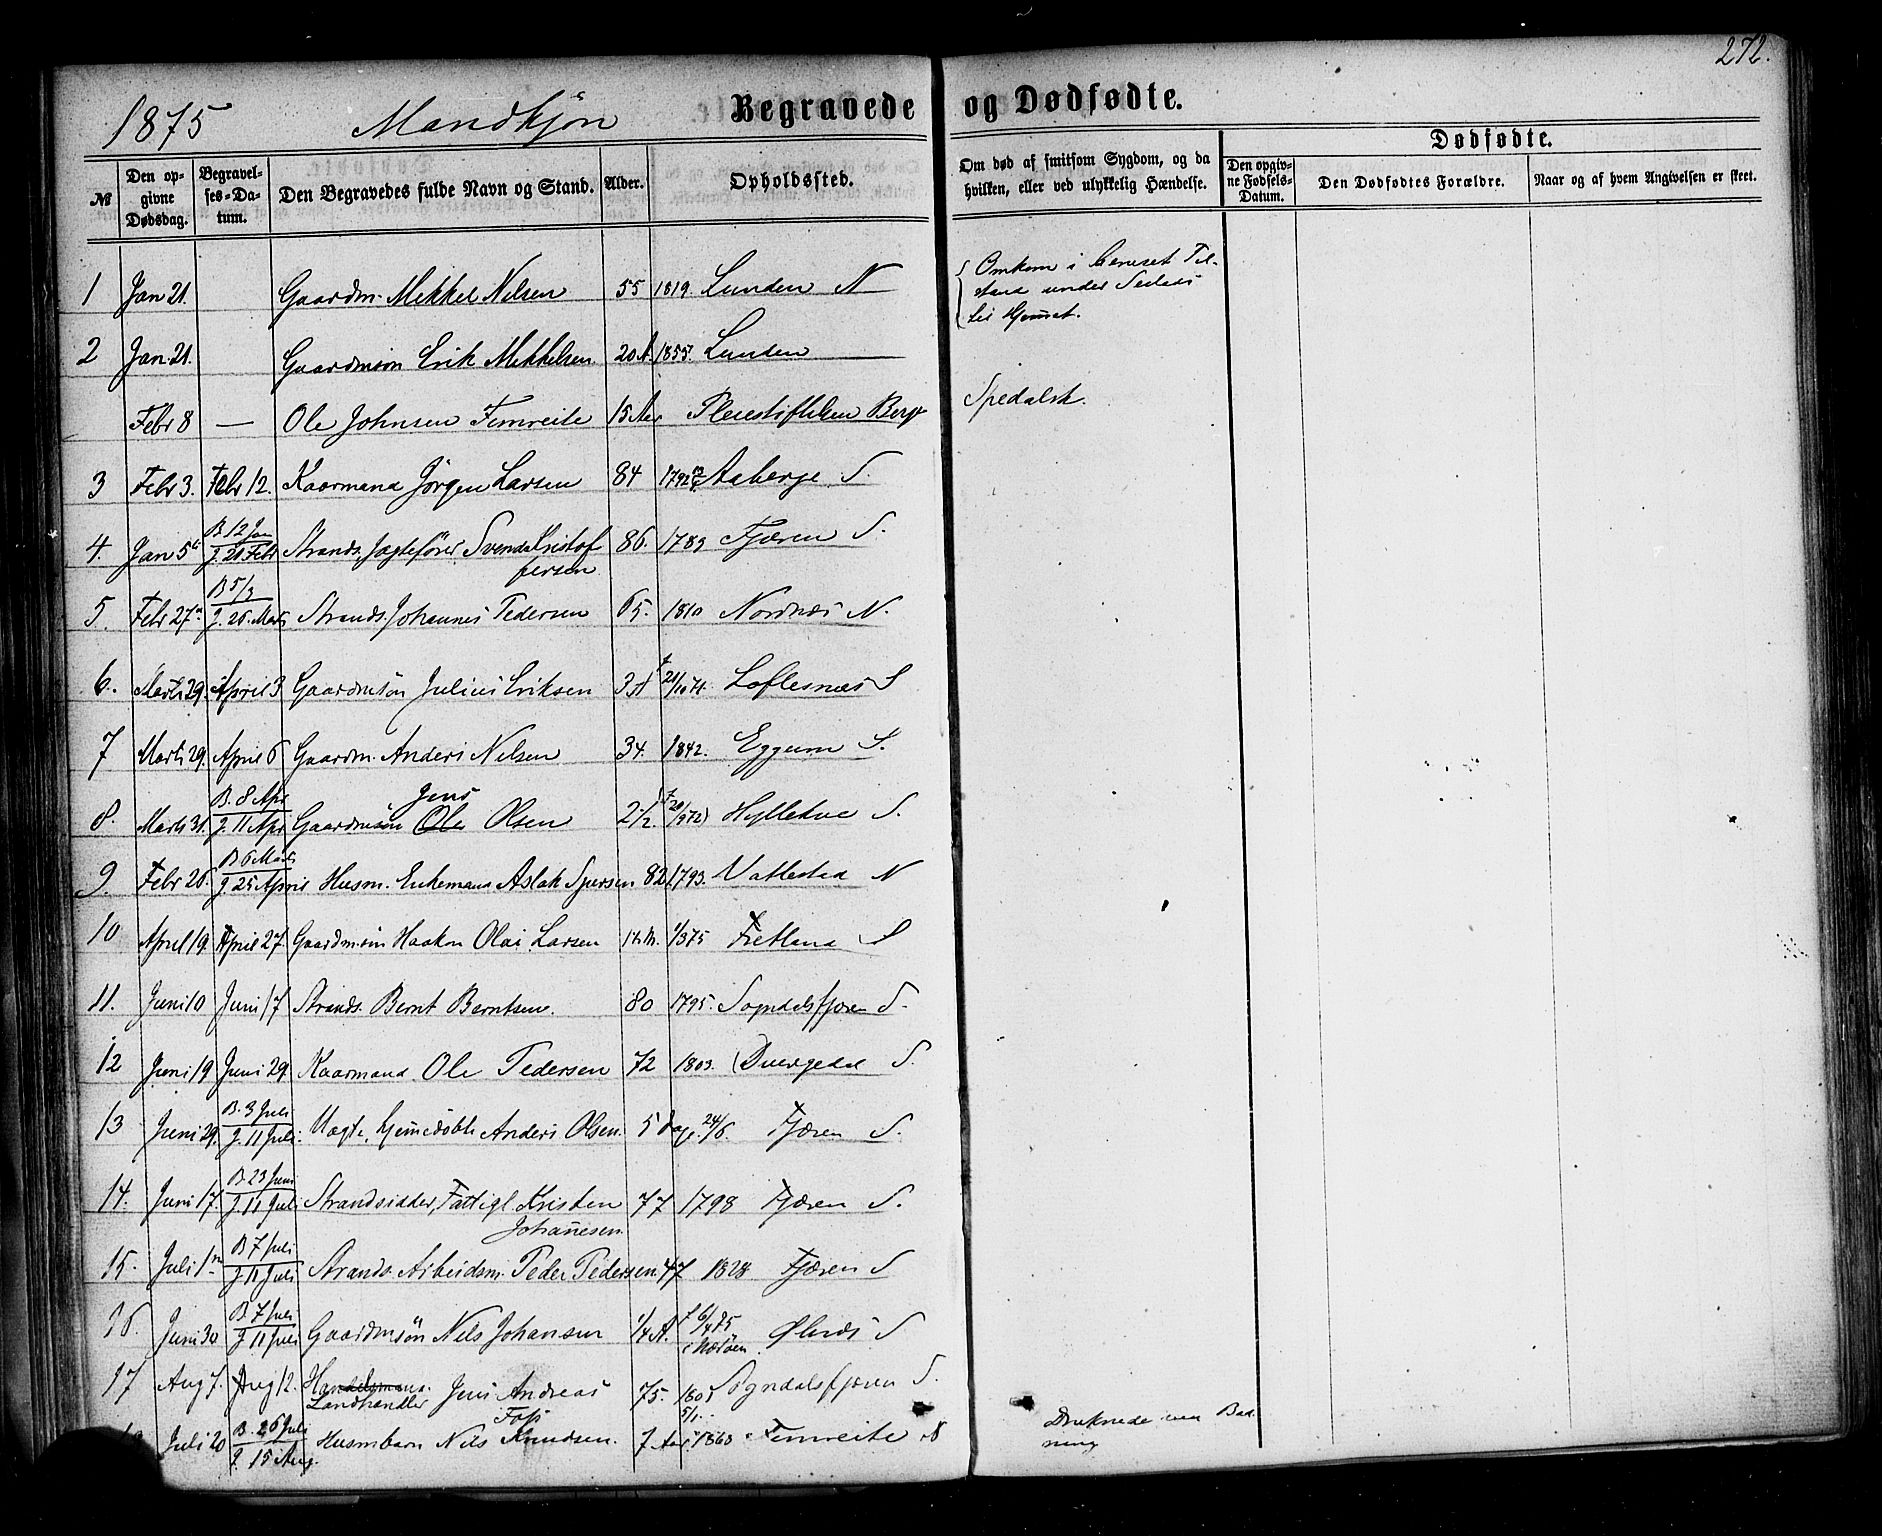 272.
1875 Mandkjøn Begravede og Dødfødte.
№ Den opgivne Dødsdag. Begravelses-Datum. Den Begravedes fulde Navn og Stand. Alder. Opholdssted. Om død af smitsom Sygdom, og da hvilken, eller ved ulykkelig Hændelse. Dødfødte. Den opgivne Fødsels-Datum. Den Dødfødtes Forældre. Naar og af hvem Angivelsen er skeet.
1 Jan 21. Gaardm. Mikkel Nilsen 55 1819. Lunden N Omkom i beruset Tilstand under Seilads til Hjemmet.
2 Jan. 21. Gaardmsøn Erik Mikkelsen 20 A. 1855. Lunden
Febr 8 — Ole Johnsen Fimreite 15 Aar Pleiestiftelsen Berg Spedalsk.
3 Febr 3. Febr 12. Kaarmand Jørgen Larsen 84 1792 Aaberge S.
4. Jan 5te B. 12 Jan J. 21 Febr Strands. Jagtefører Svend Kristoffersen 86. 1789 Fjæren S.
5. Febr 27. B 5/3 J. 26. Marts Strands. Johannes Pedersen 65. 1810 Nordnæs N.
6. Marts 29. April 3 Gaardmsøn Julius Eriksen 3 A 21/10 71. Loftesnæs S
7 Marts 29. April 6 Gaardm. Anders Nilsen 34. 1842. Eggum S.
8. Marts 31. B. 8 Apr J. 11 Apr Gaardmsøn Ole Jens Olsen 2 1/2. f 20/9 72 Hylletve S.
9. Febr 26. B 6 Marts J. 25 April Husm. Enkemand Aslak Sjursen 82 1793. Vatlestad N
10 April 19 April 27. Gaardmsøn Haakon Olai Larsen 1/375 Fretland S
11. Juni 10 Juni 17 Strands. Bernt Berntsen. 80 1795. Sogndalsfjæren S.
12 Juni 19 Juni 29. Kaarmand Ole Pedersen 72 1803. Dvergedal S.
13 Juni 29. B. 3 Juli J. 11 Juli. Uægte, hjemmedøbte Anders Olsen. 5 Dage. 24/6. Fjæren S.
14. Juni 17. B. 23 Juni J. 11 Juli Strandsidder, Fattigl. Kristen Johannesen 77 1798 Fjæren S.
15. Juli 1 B 7 Juli J. 11 Juli Strands. Arbeidsm. Peder Pedersen. 47 1828 Fjæren S
16. Juni 30 B. 7 Juli J 11 Juli Gaardmsøn Nils Johansen 1/4 A. f 6/4 75 Ølnæs S
17 Aug 7. Aug 12. Handelsmand. Landhandler Jens Andreas Fasz 75. 1800 5/1. Sogndalsfjæren S.
Juli 20 B. 26 Juli J. 15 Aug. Husmbarn Nils Knudsen. 7 Aar 1868 Fimreite N Druknede ved Badning